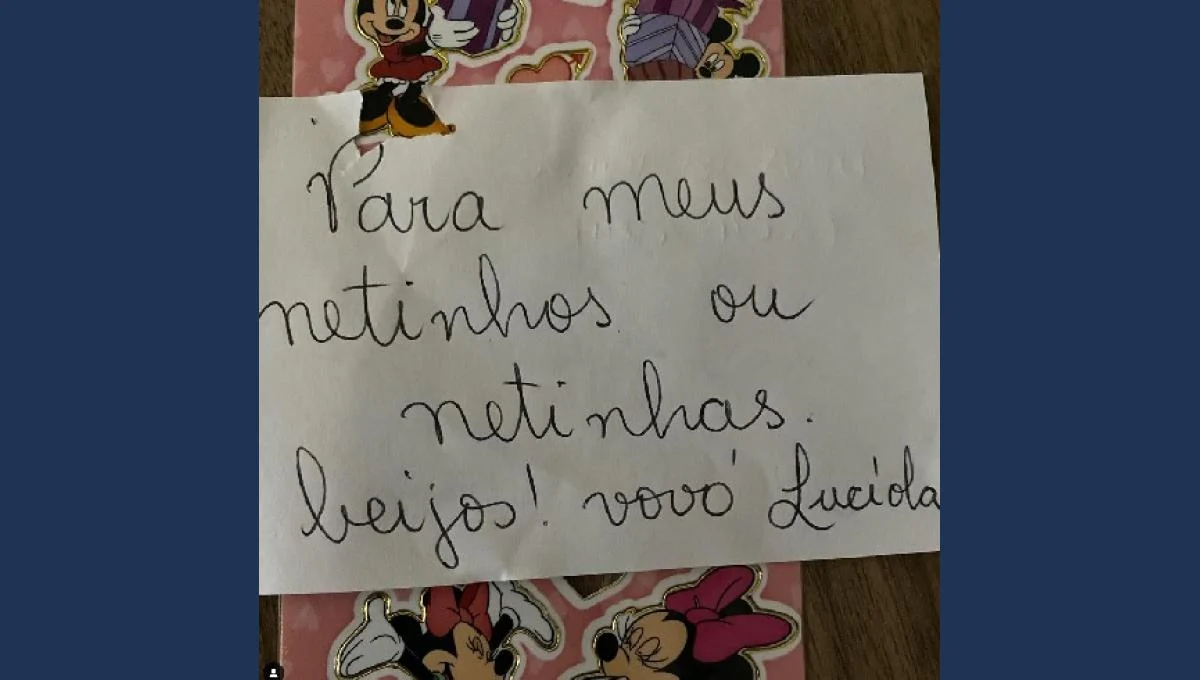 Para meus
netinhos ou
netinhas.
beijos! vovó Lucíola